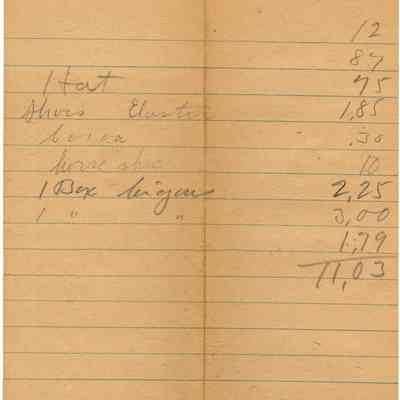 12
87
1 Hat 75
Shoes Elastic 1,85
.30
horse shoe 10
1 Box Cigars 2,25
1 " " 3,00
1,79
11,03